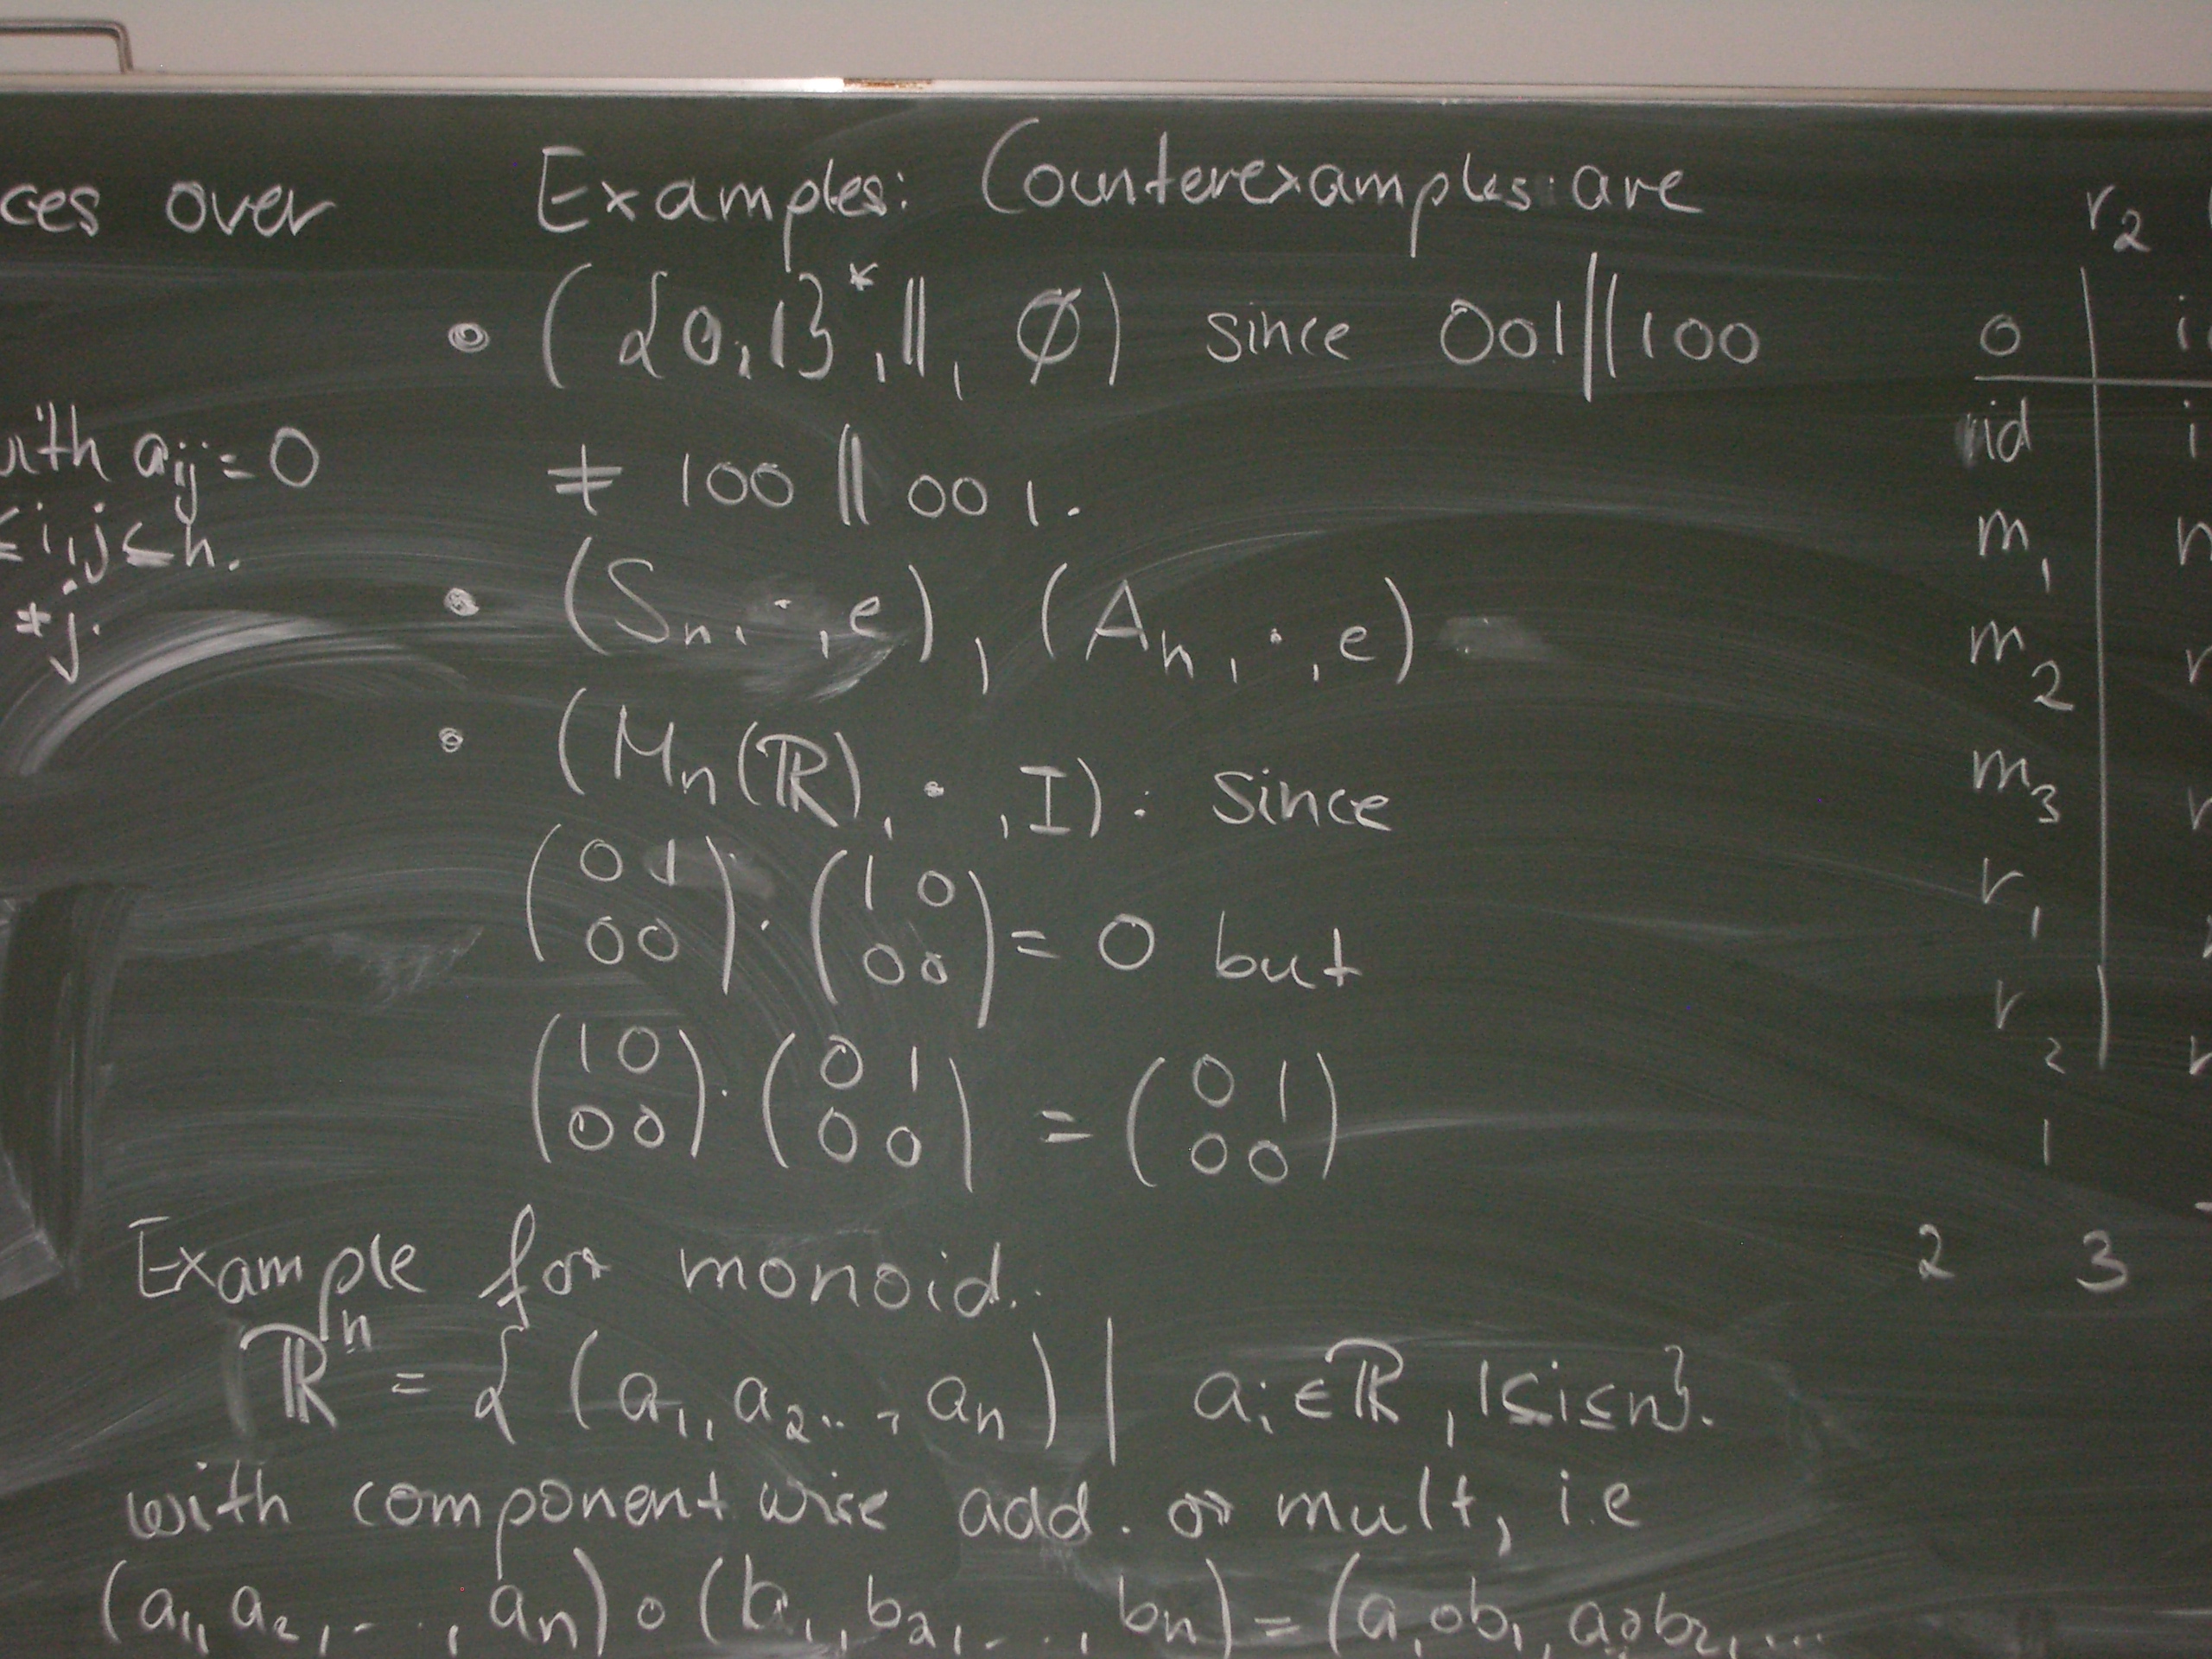 ces over
with aij = 0
≤ i, j ≤ n.
≠ j.
Examples: Counterexamples: are
• ( {0,1}*, ||, Ø ) since 001 || 100
≠ 100 || 001.
• (Sn, ·, e), (An, ·, e)
• (Mn(ℝ), ·, I): since
(0 1
00) · (1 0
00) = 0 but
(10
00) · (0 1
00) = (0 1
00)
Example for monoid.
ℝ^n = { (a1, a2 .., an) | ai ∈ ℝ, 1≤i≤n}.
with componentwise add. or mult, i.e
(a1, a2, ..., an) ∘ (b1, b2, ..., bn) = (a1∘b1, a2∘b2, ...
r2
0
id
m1
m2
m3
r1
r2
1
2 3